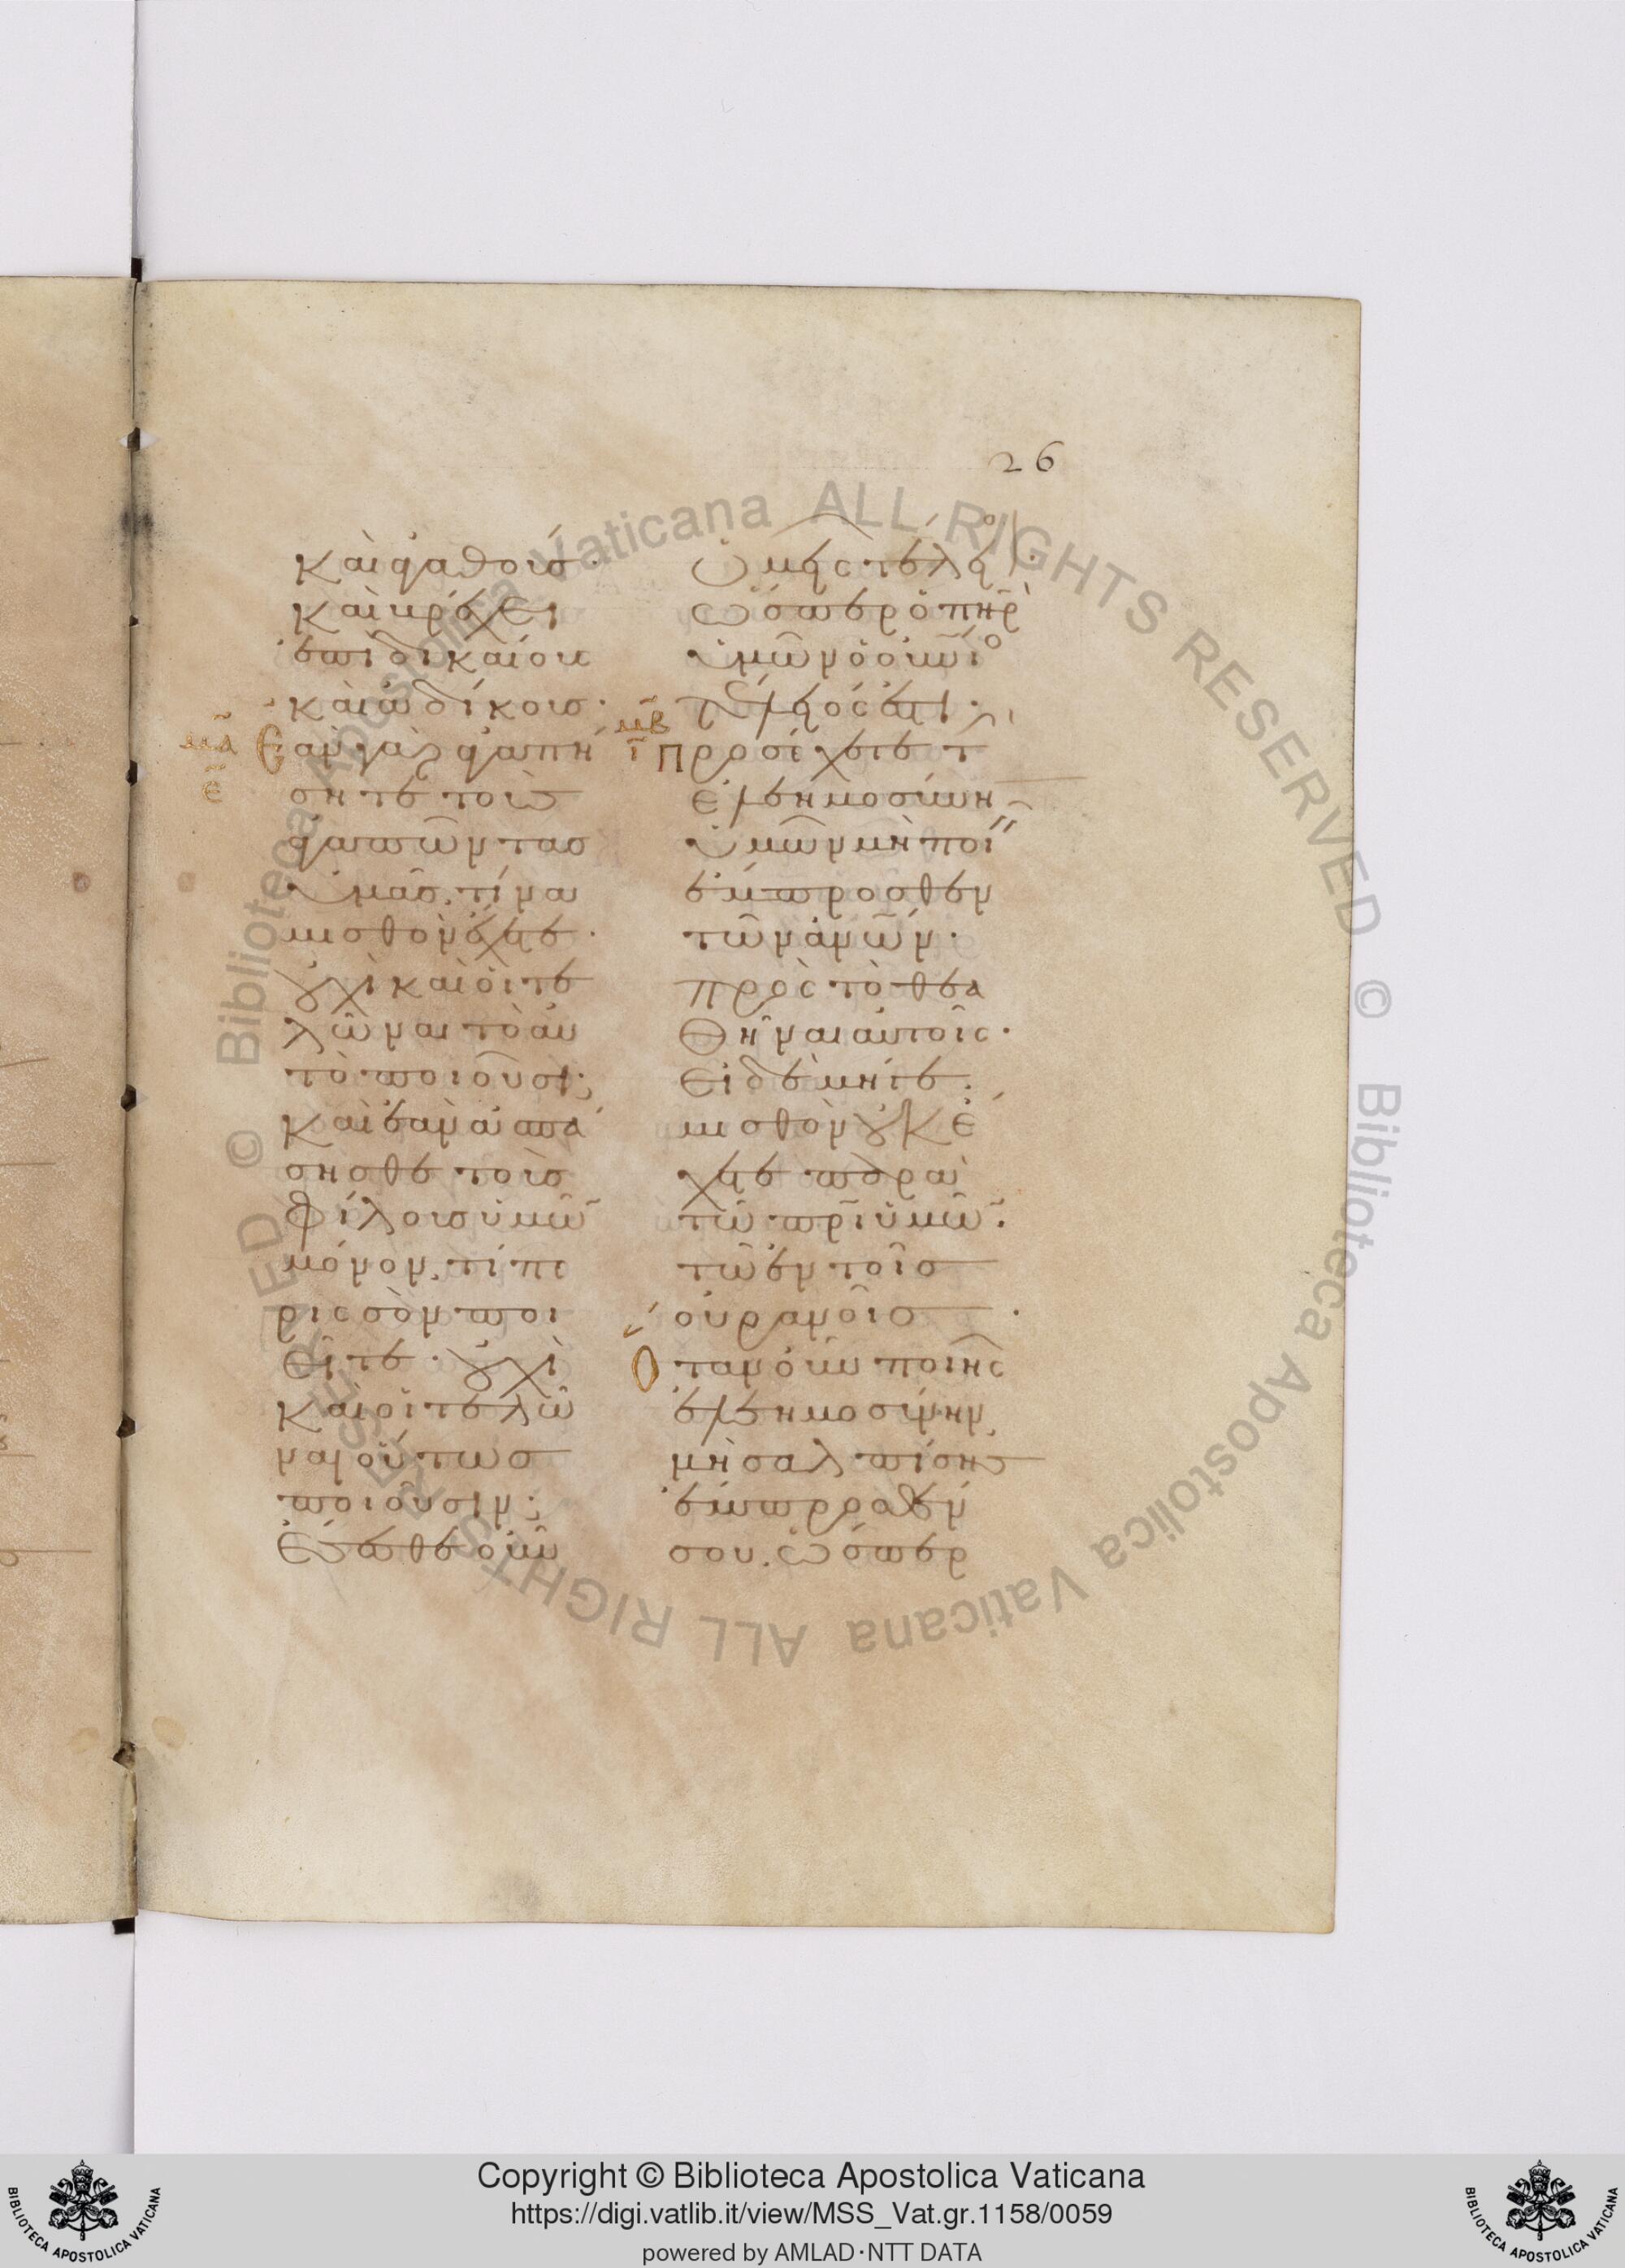 26
καὶ ἀγαθούς·
καὶ βρέχει
ἐπὶ δικαίους
καὶ ἀδίκους·
μα Ἐὰν γὰρ ἀγαπή
ε σητε τοὺς
ἀγαπῶντας
ὑμᾶς, τίνα
μισθὸν ἔχετε·
οὐχὶ καὶ οἱ τε
λῶναι τὸ αὐ
τὸ ποιοῦσι;
καὶ ἐὰν ἀσπά
σησθε τοὺς
φίλους ὑμῶν
μόνον, τί πε
ρισσὸν ποι
εῖτε· οὐχὶ
καὶ οἱ τελῶ
ναι οὕτως
ποιοῦσιν;
Ἔσεσθε οὖν
ὑμεῖς τέλειοι·
ὥσπερ ὁ πηρ
ὑμῶν ὁ οὐνιο
τέλειός ἐστι·
μβ ι Προσέχετε τ
ἐλεημοσύνη
ὑμῶν μὴ ποι
ἔμπροσθεν
τῶν ἀνων·
πρὸς τὸ θεα
θῆναι αὐτοῖς·
εἰ δὲ μήγε.
μισθὸν οὐκ ἔ
χετε παραὶ
τῶ πρι ὑμῶ·
τῶ ἐν τοῖς
οὐρανοῖς·
Ὅταν οὖν ποιῆς
ἐλεημοσύνην
μὴ σαλπίσης
ἔμπροσθέν
σου, ὥσπερ
Copyright © Biblioteca Apostolica Vaticana
https://digi.vatlib.it/view/MSS_Vat.gr.1158/0059
powered by AMLAD·NTT DATA
BIBLIOTECA APOSTOLICA VATICANA
BIBLIOTECA APOSTOLICA VATICANA
© Biblioteca Apostolica Vaticana ALL RIGHTS RESERVED © Biblioteca Apostolica Vaticana ALL RIGHTS RESERVED